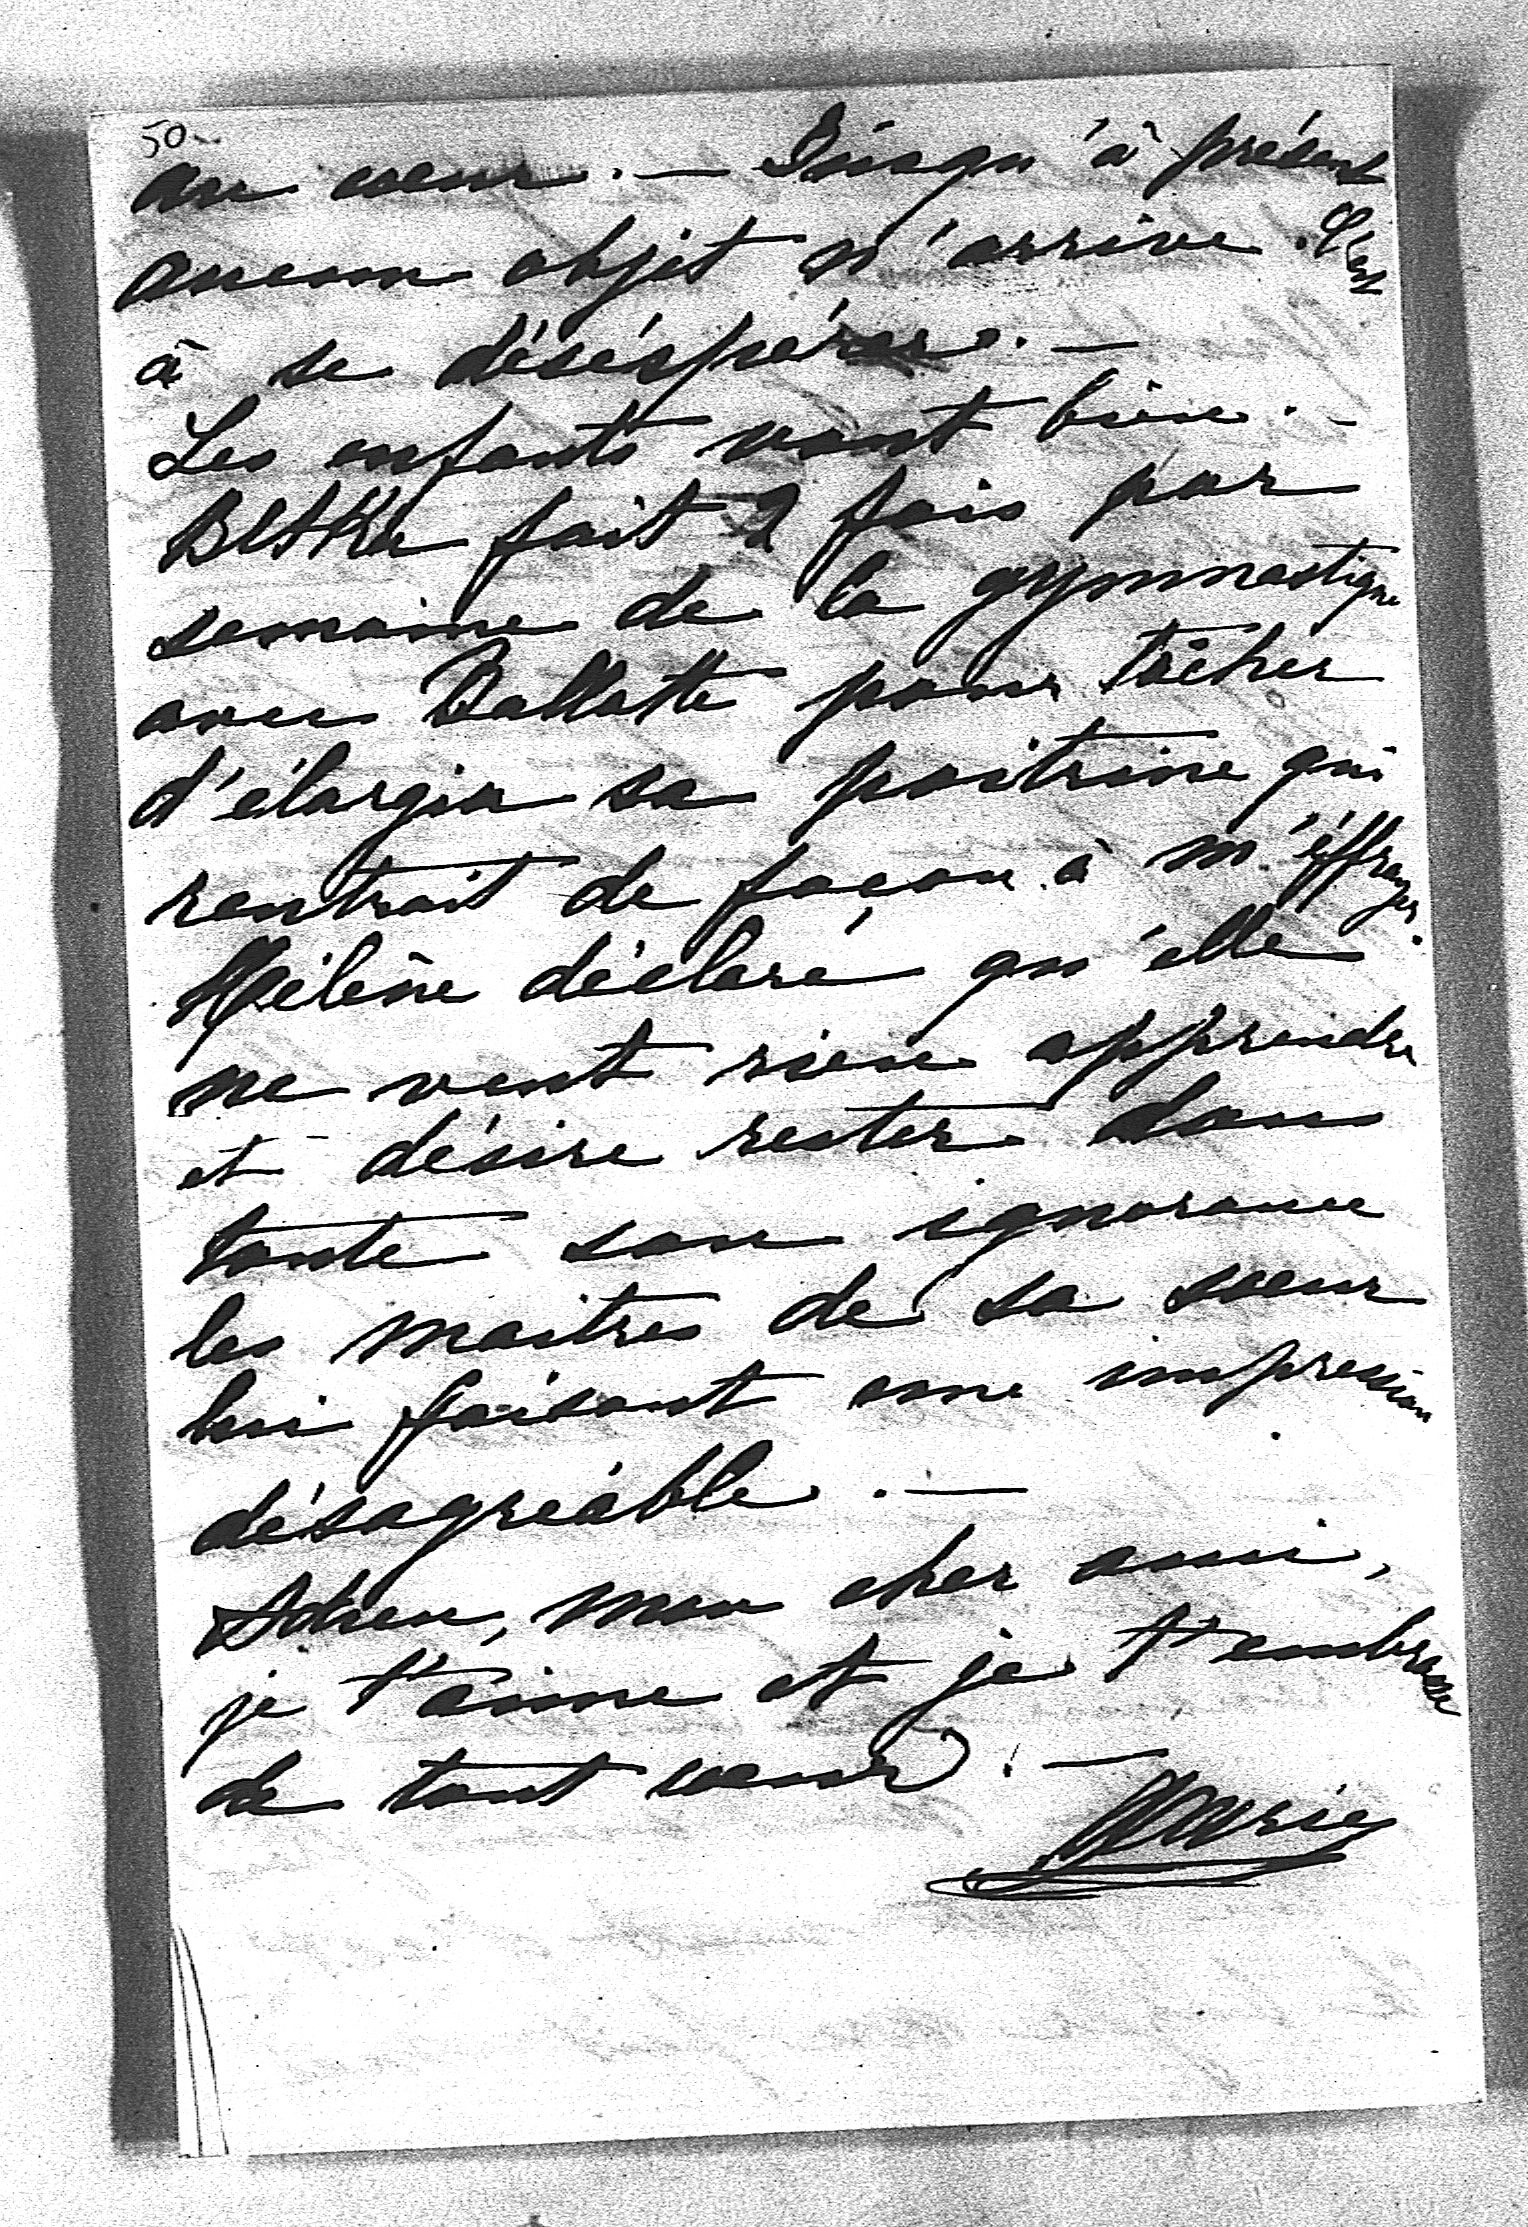 50
au coeur. — Jusqu'à présent
aucun objet n'arrive. C'est
à se désespérer. —
Les enfants vont bien. —
fait 2 fois par
semaine de la gymnastique
avec pour tâcher
d'élargir sa poitrine qui
rentrait de façon à m'éffrayer.
Hélène déclare qu'elle
ne veut rien apprendre
et désire rester dans
toute son ignorance
les maitres de sa soeur
lui faisant une impression
désagréable. —
Adieu, mon cher ami,
je t'aime et je t'embrasse
de tout coeur. —
Marie